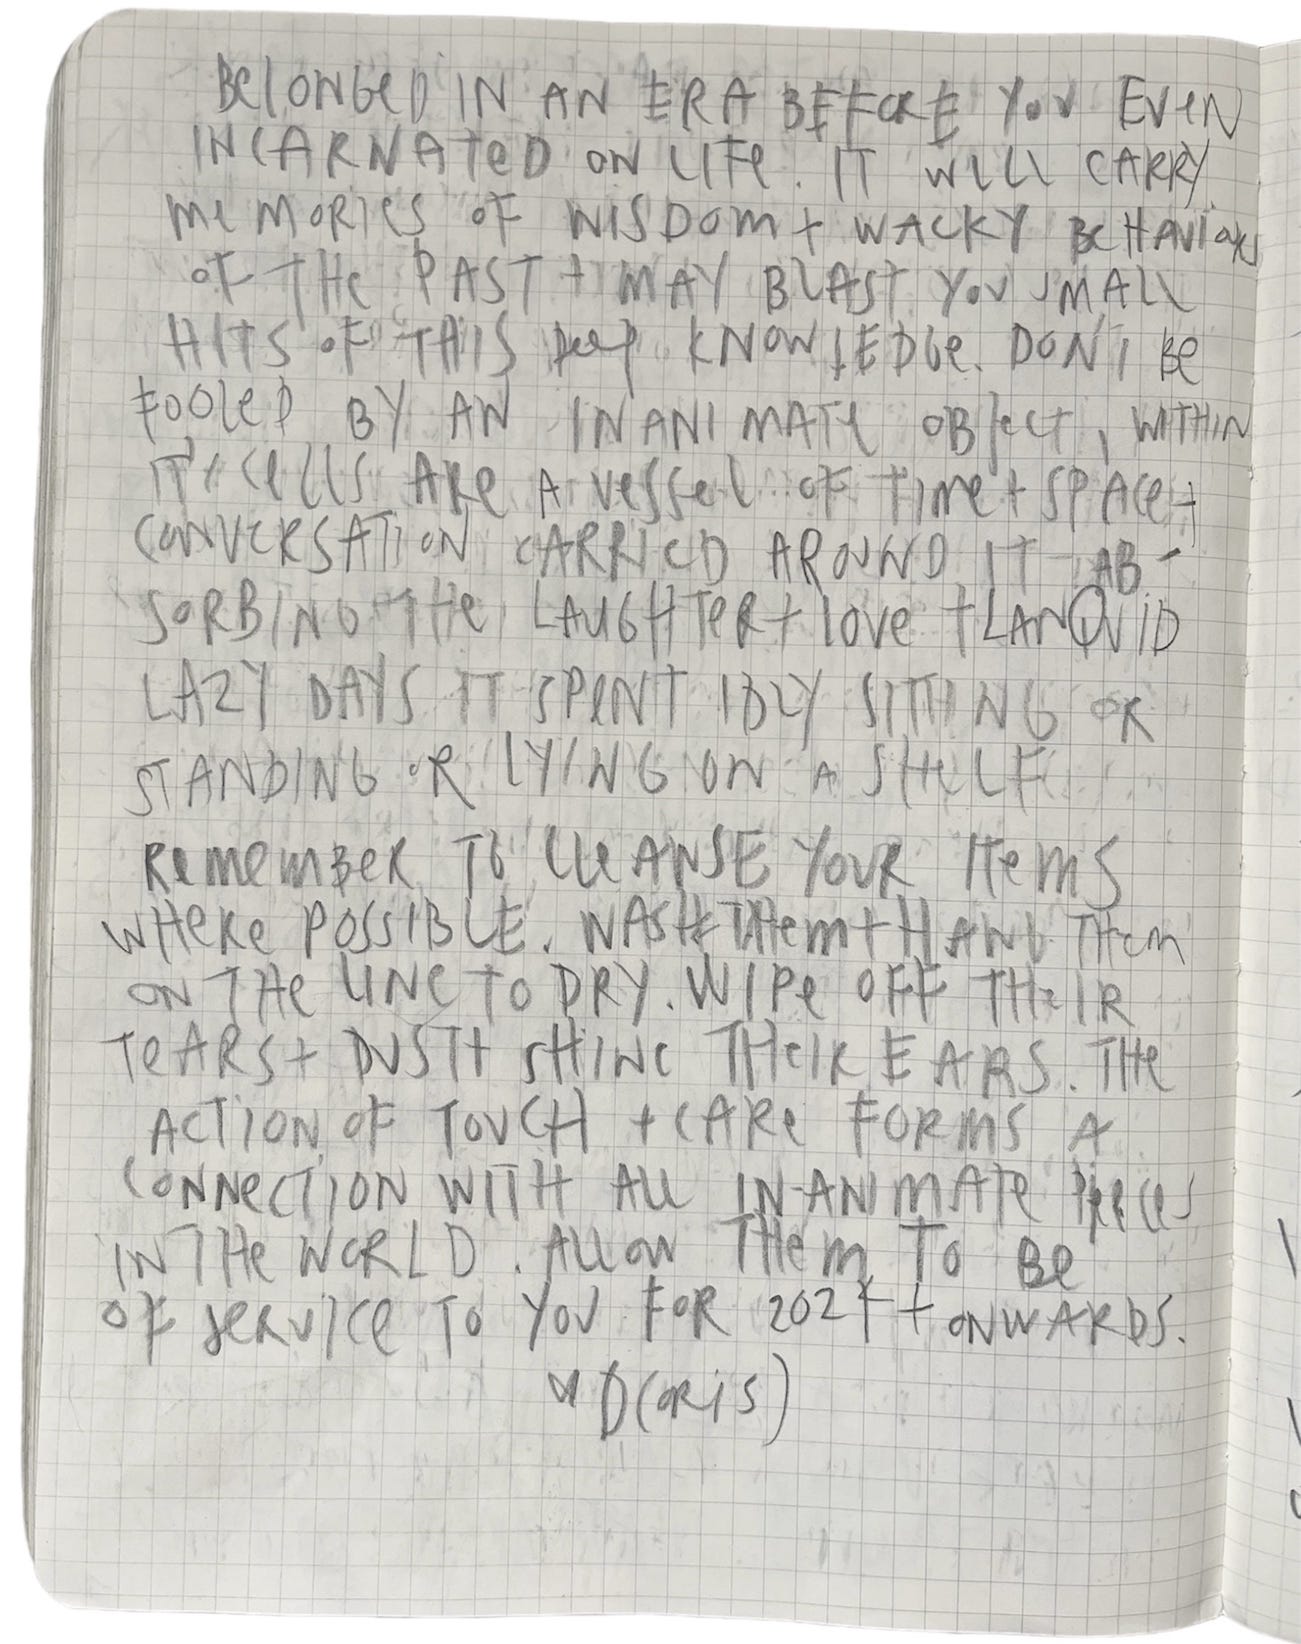 BELONGED IN AN ERA BEFORE YOU EVEN
INCARNATED ON LIFE. IT WILL CARRY
MEMORIES OF WISDOM + WACKY BEHAVIOURS
OF THE PAST + MAY BLAST YOU SMALL
HITS OF THIS DEEP KNOWLEDGE. DON'T BE
FOOLED BY AN INANIMATE OBJECT, WITHIN
IT'S CELLS ARE A VESSEL OF TIME + SPACE +
CONVERSATION CARRIED AROUND IT AB-
SORBING THE LAUGHTER + LOVE + LANQUID
LAZY DAYS IT SPENT IDLY SITTING OR
STANDING OR LYING ON A SHELF
REMEMBER TO CLEANSE YOUR ITEMS
WHERE POSSIBLE. WASH THEM + HANG THEM
ON THE LINE TO DRY. WIPE OFF THEIR
TEARS + DUST + SHINE THEIR EARS. THE
ACTION OF TOUCH + CARE FORMS A
CONNECTION WITH ALL IN-ANIMATE PIECES
IN THE WORLD. ALLOW THEM TO BE
OF SERVICE TO YOU FOR 2024 + ONWARDS.
D(ORIS)